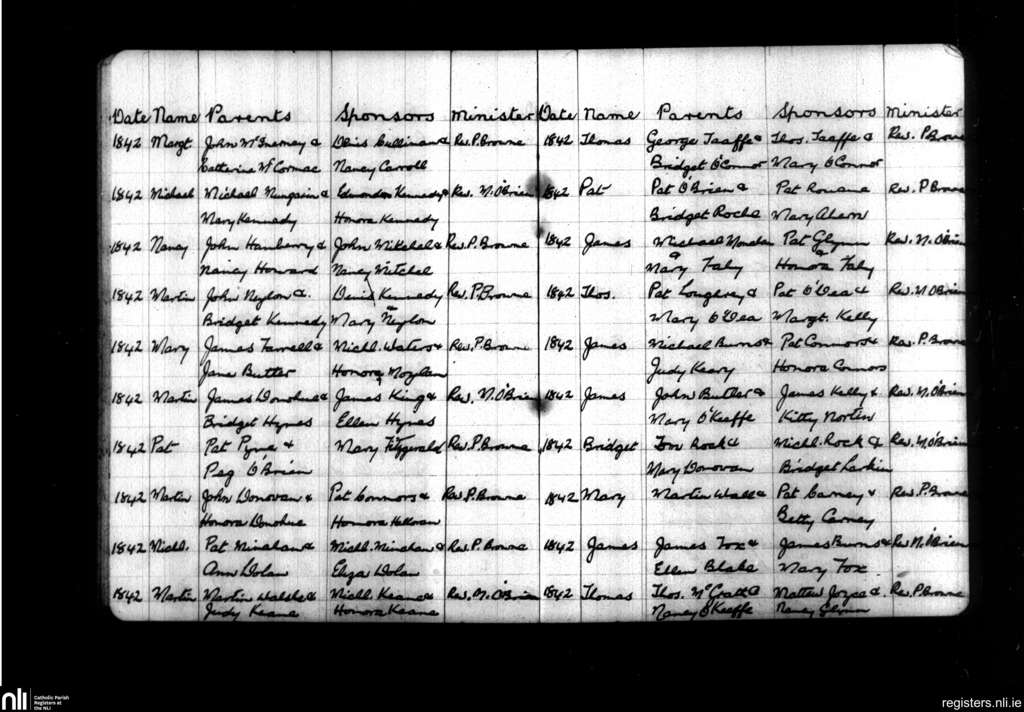 Date Name Parents Sponsors Minister
1842 Margt. John McInerney & Denis Cullinan & Rev. P. Browne
Catherine McCormac Nancy Carroll
1842 Michael Michael & Edmond Kennedy & Rev. M. O'Brien
Mary Kennedy Honora Kennedy
1842 Nancy John Hanberry & John Mitchel & Rev. P. Browne
Nancy Howard Nancy Mitchel
1842 Martin John Neylon & Denis Kennedy Rev. P. Browne
Bridget Kennedy Mary Neylon
1842 Mary James Farrell & Michl. Waters & Rev. P. Browne
Jane Butler Honora Moylan
1842 Martin James Donohue & James King & Rev. M. O'Brien
Bridget Hynes Ellen Hynes
1842 Pat Pat Pyne & Mary Fitzgerald Rev. P. Browne
Peg O'Brien
1842 Martin John Donovan & Pat Connors & Rev. P. Browne
Honora Donohue Honora
1842 Michl. Pat Minahan & Michl. Minahan & Rev. P. Browne
Ann Dolan Eliza Dolan
1842 Martin Martin Walshe & Michl. Keane & Rev. M. O'Brien
Judy Keane Honora Keane
Date Name Parents Sponsors Minister
1842 Thomas George Taaffe & Thos. Taaffe & Rev. P. Browne
Bridget O'Connor Mary O'Connor
1842 Pat Pat O'Brien & Pat Rev. P. Browne
Bridget Roche Mary Ahern
1842 James Michael Pat Glynn Rev. M. O'Brien
& &
Mary Fahy Honora Fahy
1842 Thos. Pat Loughrey & Pat O'Dea & Rev. M. O'Brien
Mary O'Dea Margt. Kelly
1842 James Michael Burns & Pat Connors & Rev. P. Browne
Judy Keary Honora Connors
1842 James John Butler & James Kelly & Rev. M. O'Brien
Mary O'Keeffe Kitty Norten
1842 Bridget Tom Rock & Michl. Rock & Rev. M. O'Brien
Mary Donovan Bridget Larkin
1842 Mary Martin Wall & Pat Carney & Rev. P. Browne
Betty Carney
1842 James James Fox & James Burns & Rev. M. O'Brien
Ellen Blake Mary Fox
1842 Thomas Thos. McGrath & Mattew Joyce & Rev. P. Browne
Nancy O'Keeffe Nancy Glynn
nli
Catholic Parish
Registers at
the NLI
registers.nli.ie